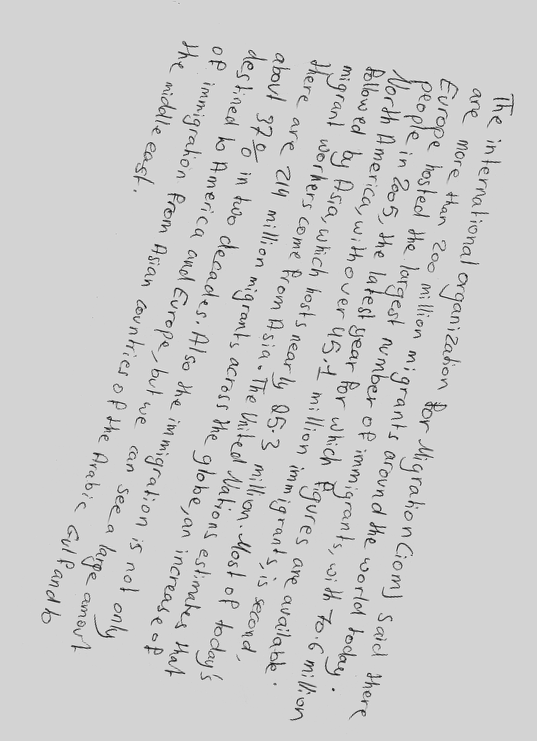 The international organization for Migration (iom) said there
are more than 200 million migrants around the world today.
Europe hosted the largest number of immigrants, with 70.6 million
people in 2005, the latest year for which figures are available.
North America, with over 45.1 million immigrants, is second,
followed by Asia, which hosts nearly 25.3 million. Most of today's
migrant workers come from Asia. The United Nations estimates that
there are 214 million migrants across the globe, an increase of
about 37% in two decades. Also the immigration is not only
destined to America and Europe, but we can see a large amount
of immigration from Asian countries of the Arabic Gulf and to
the middle east.